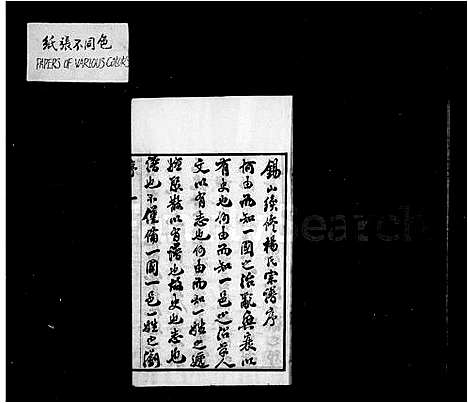 紙張不同色
PAPERS OF VARIOUS COLORS
錫山續修楊氏宗譜序
何由而知一國之治亂興衰以
有史也何由而知一邑之沿革人
文以有志也何由而知一姓之遞
嬗敷散以有譜也故史也志也
譜也不僅備一國一邑一姓之瀏
序 一